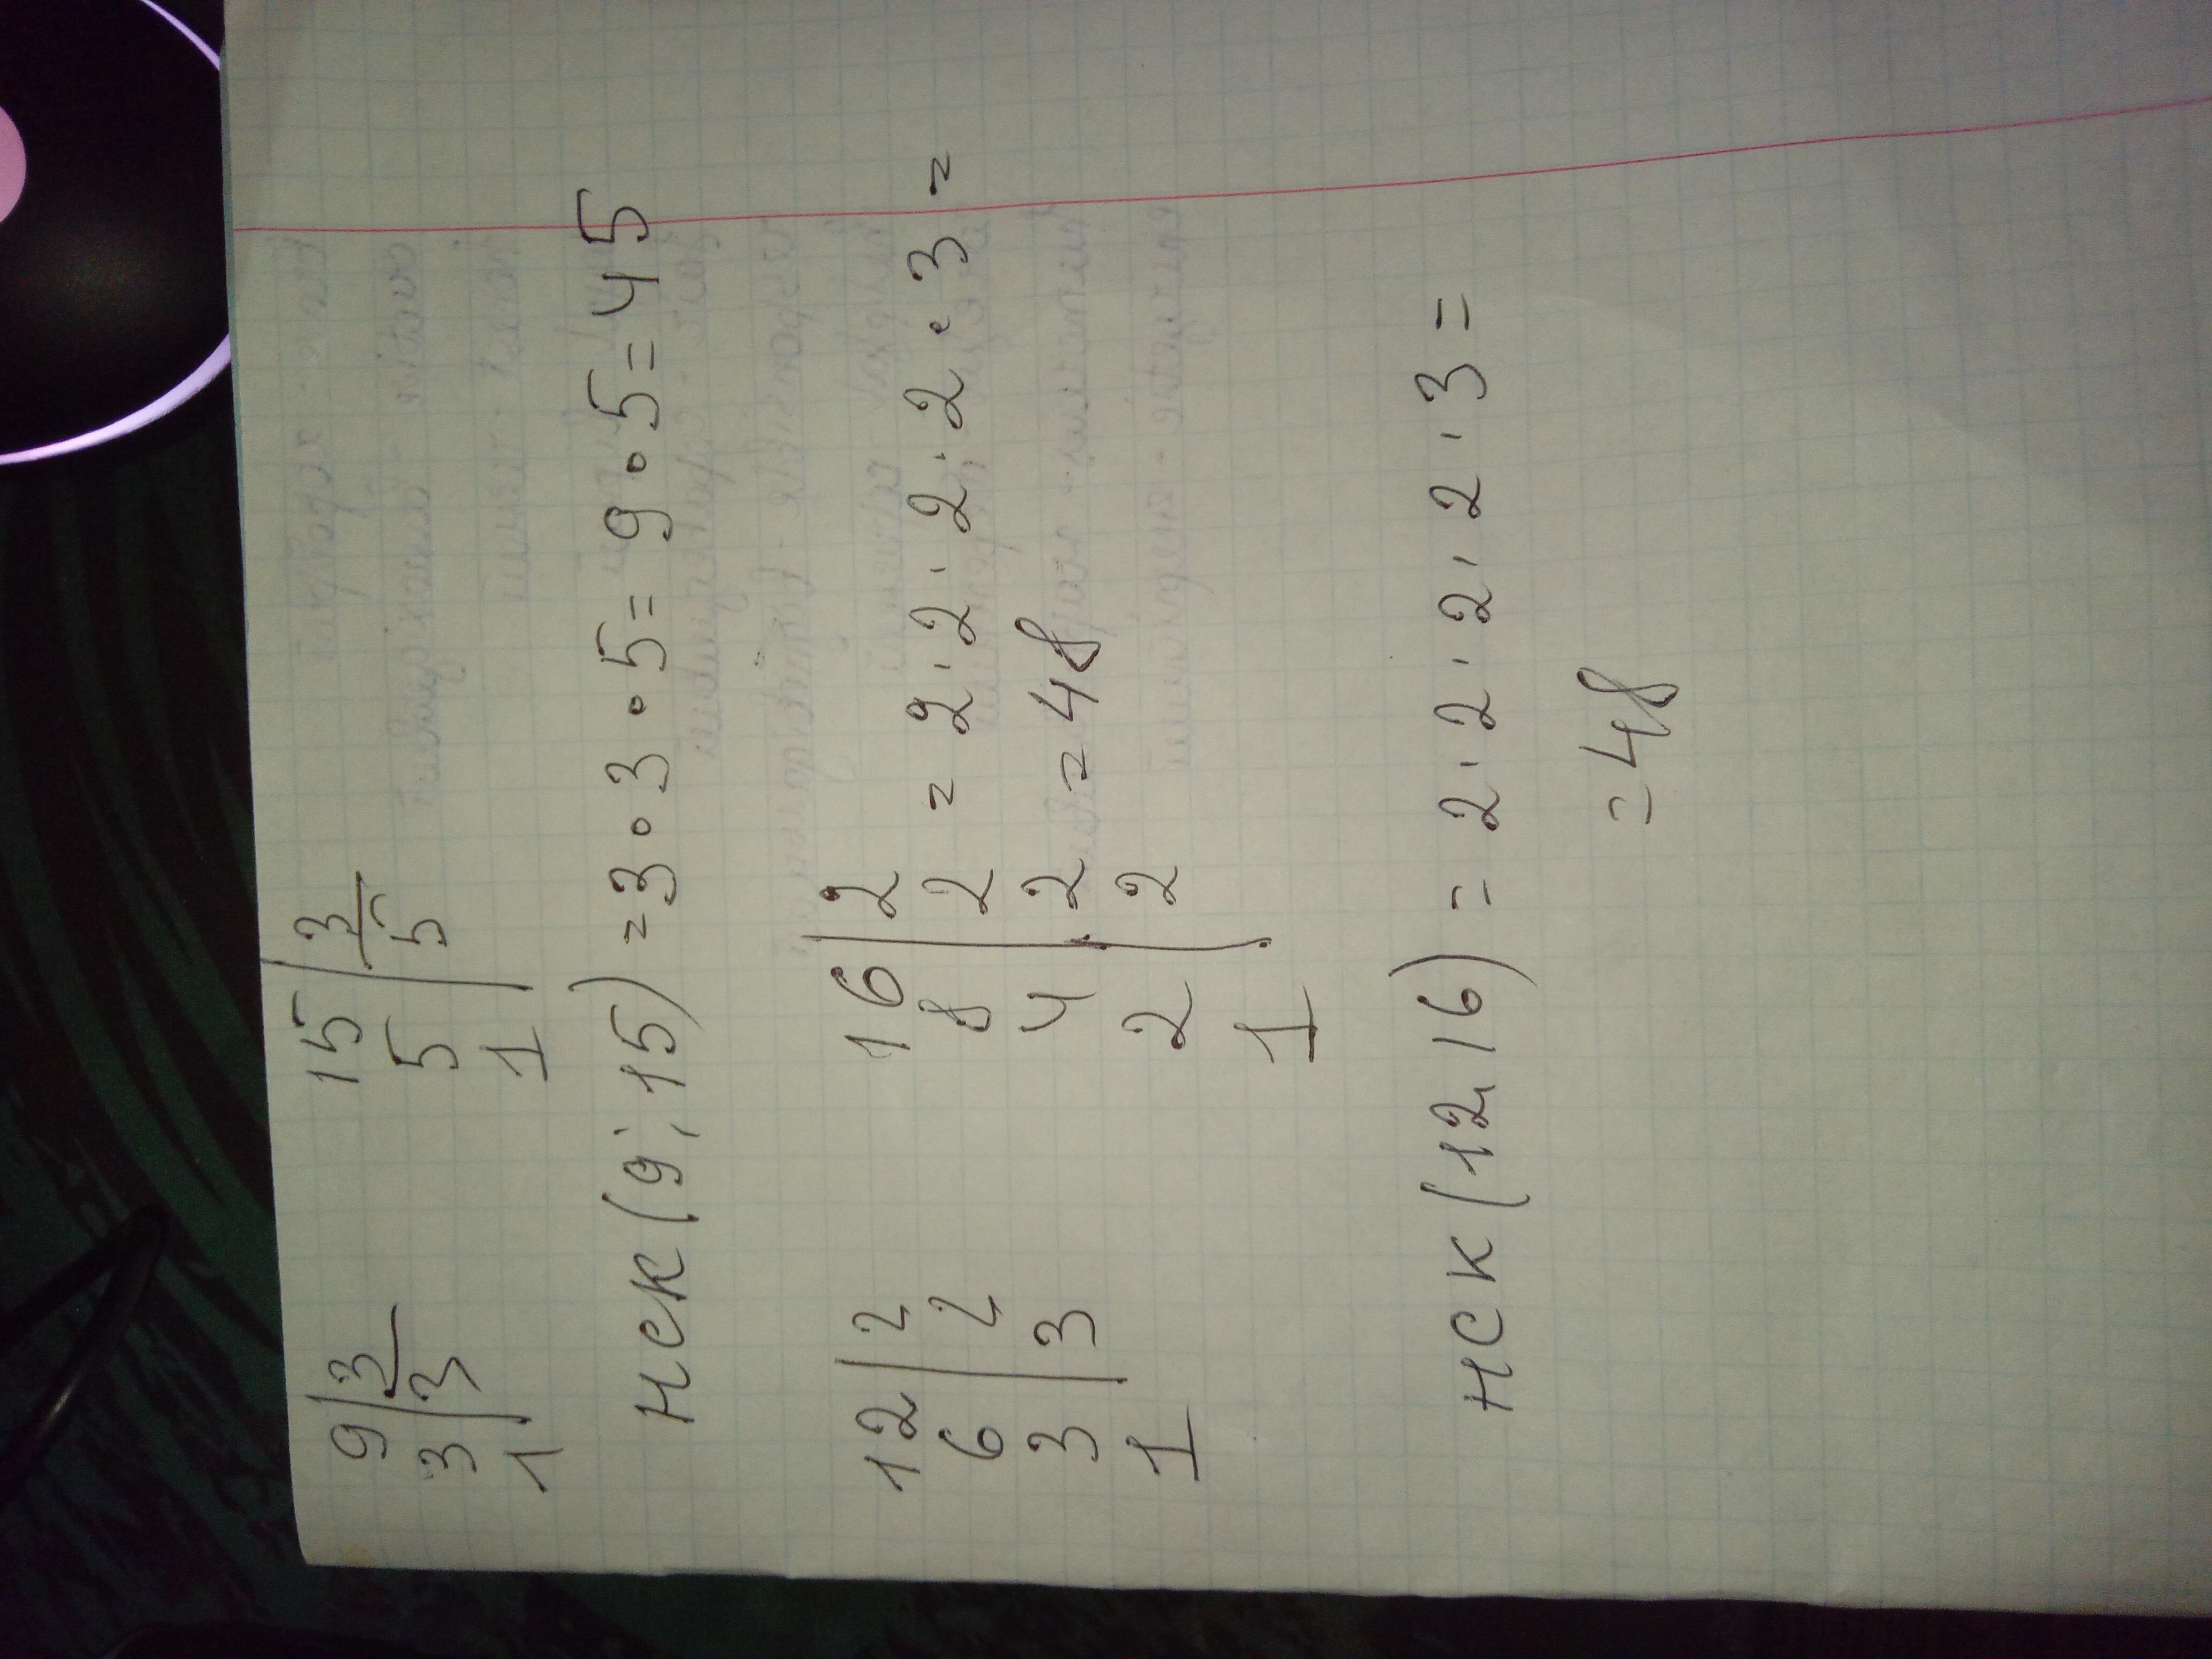 9|3 15|3
3|3 5|5
1 1
НСК (9; 15) = 3 ∘ 3 ∘ 5 = 9 ∘ 5 = 45
12|2 16|2
6|2 8|2 = 2 · 2 · 2 · 2 · 3 =
3|3 4|2 = 48
1 2|2
1
НСК (12, 16) = 2 · 2 · 2 · 2 · 3 =
= 48